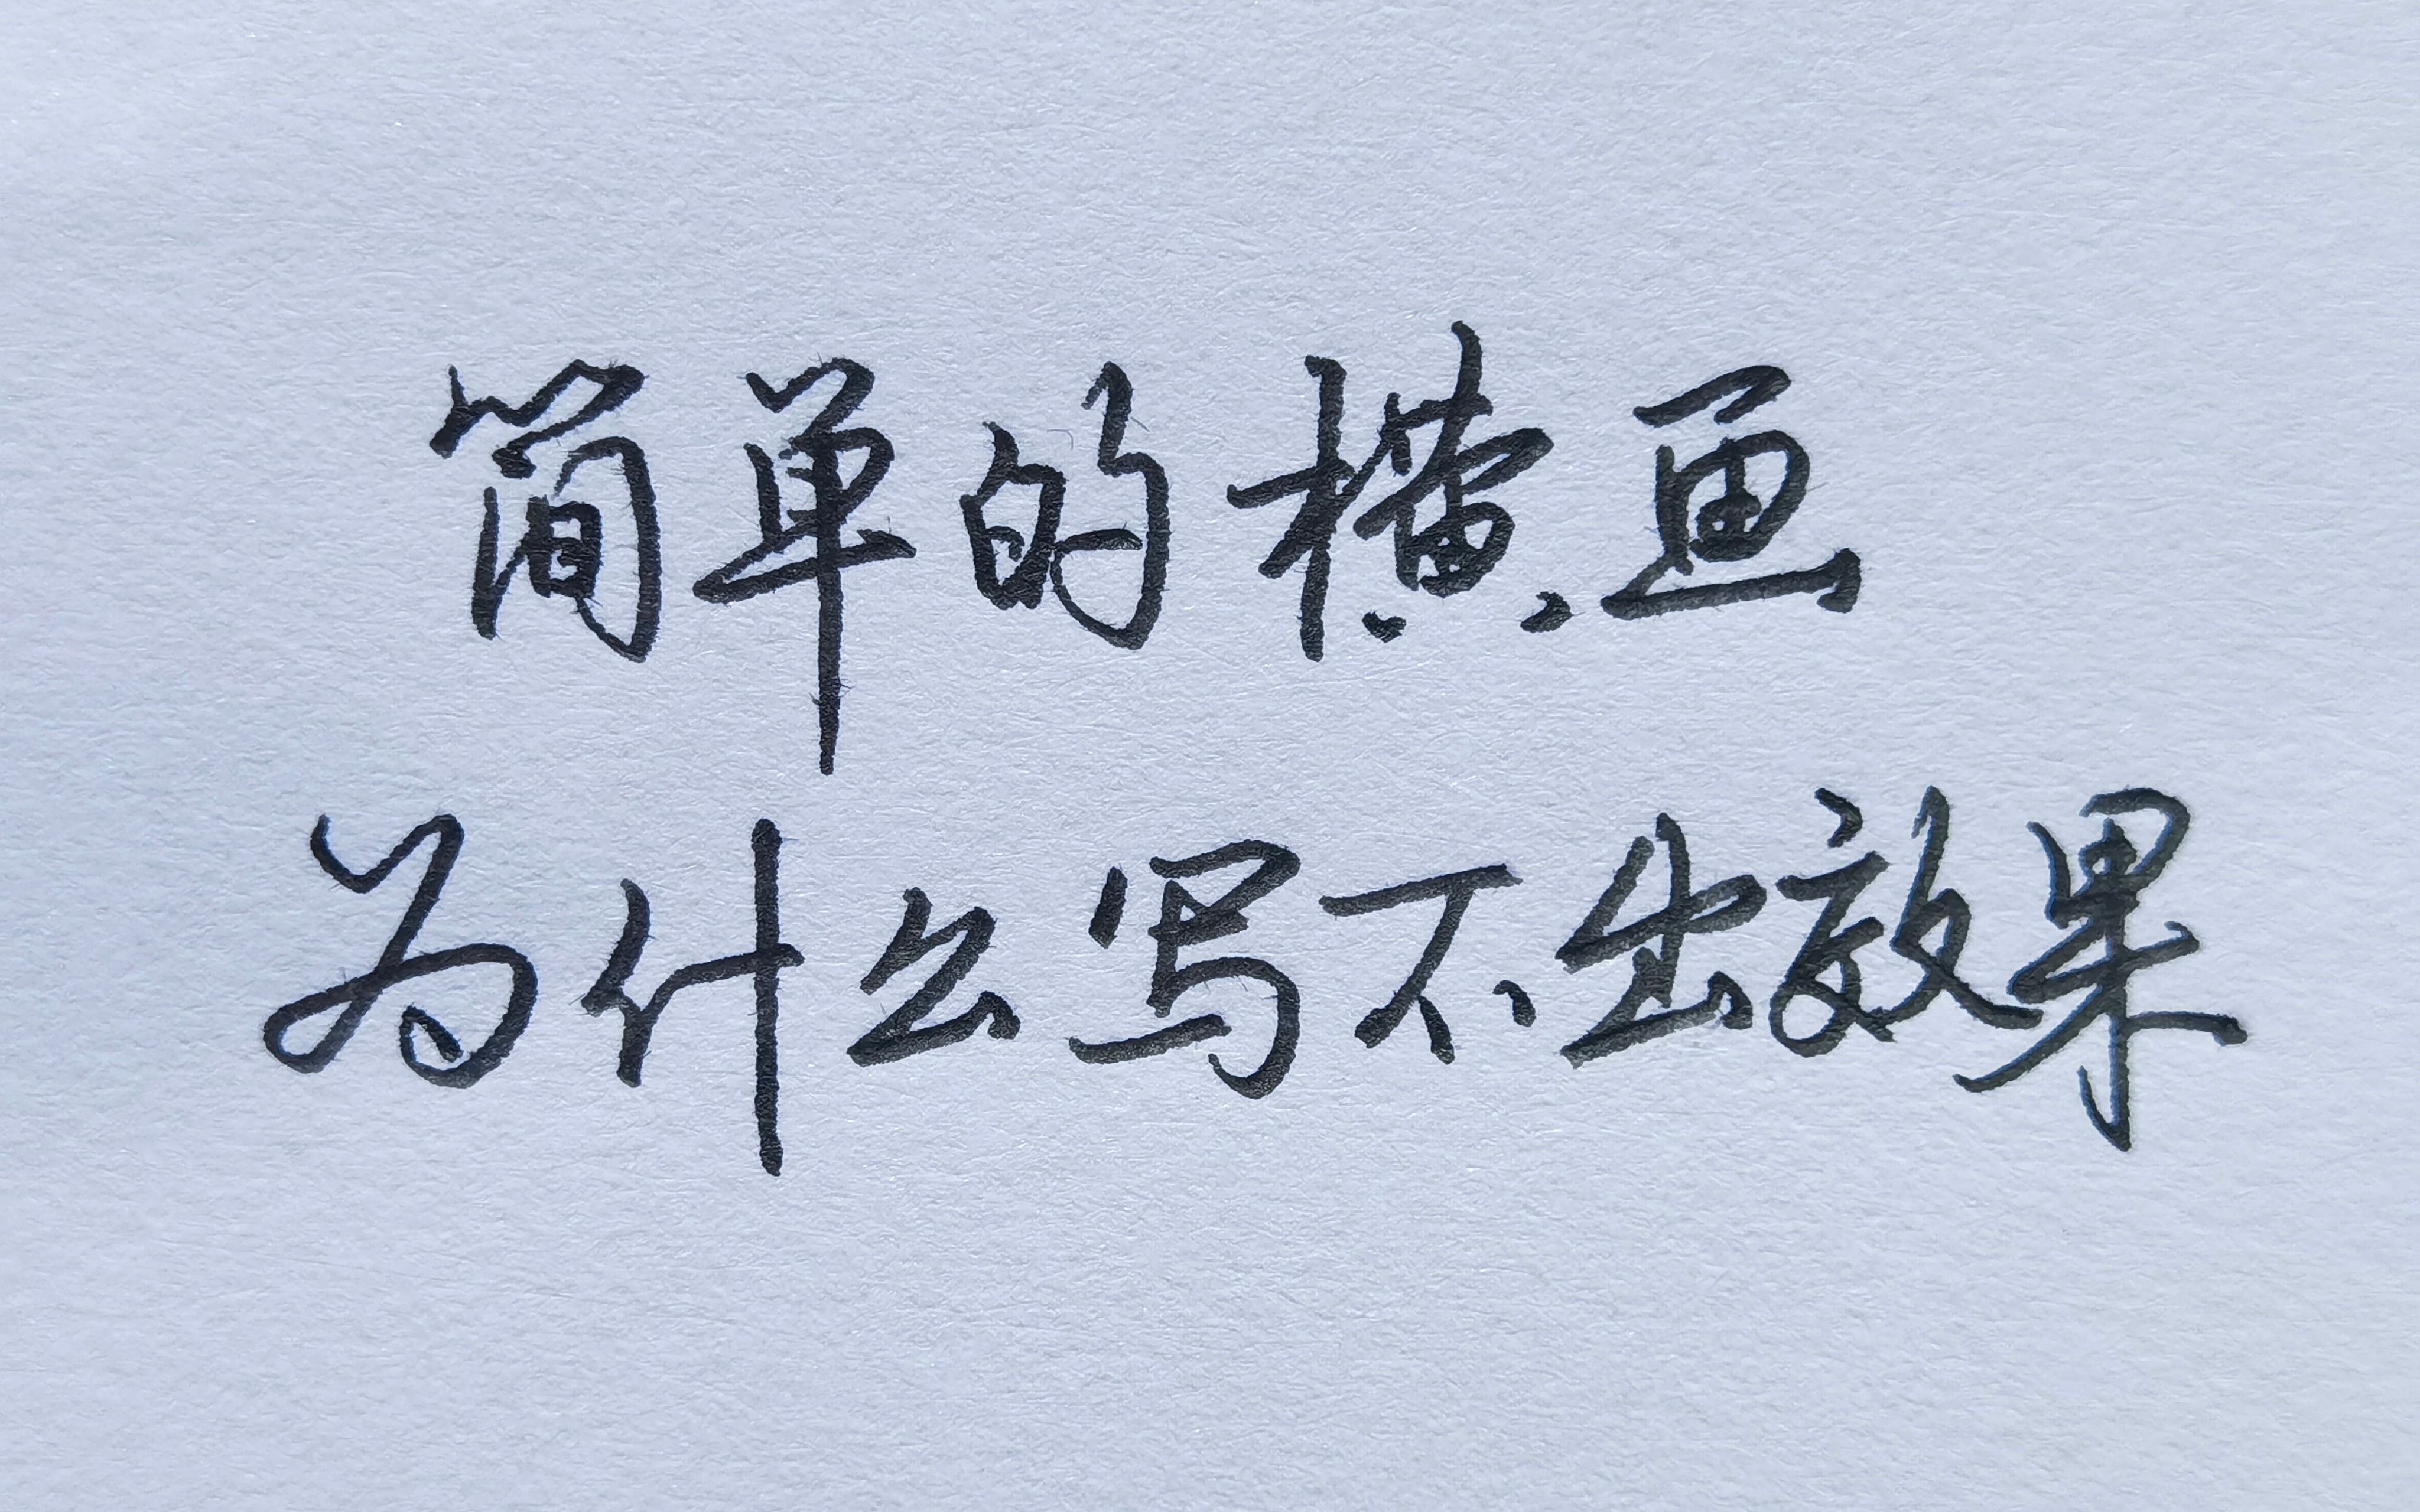 简单的横画
为什么写不出效果